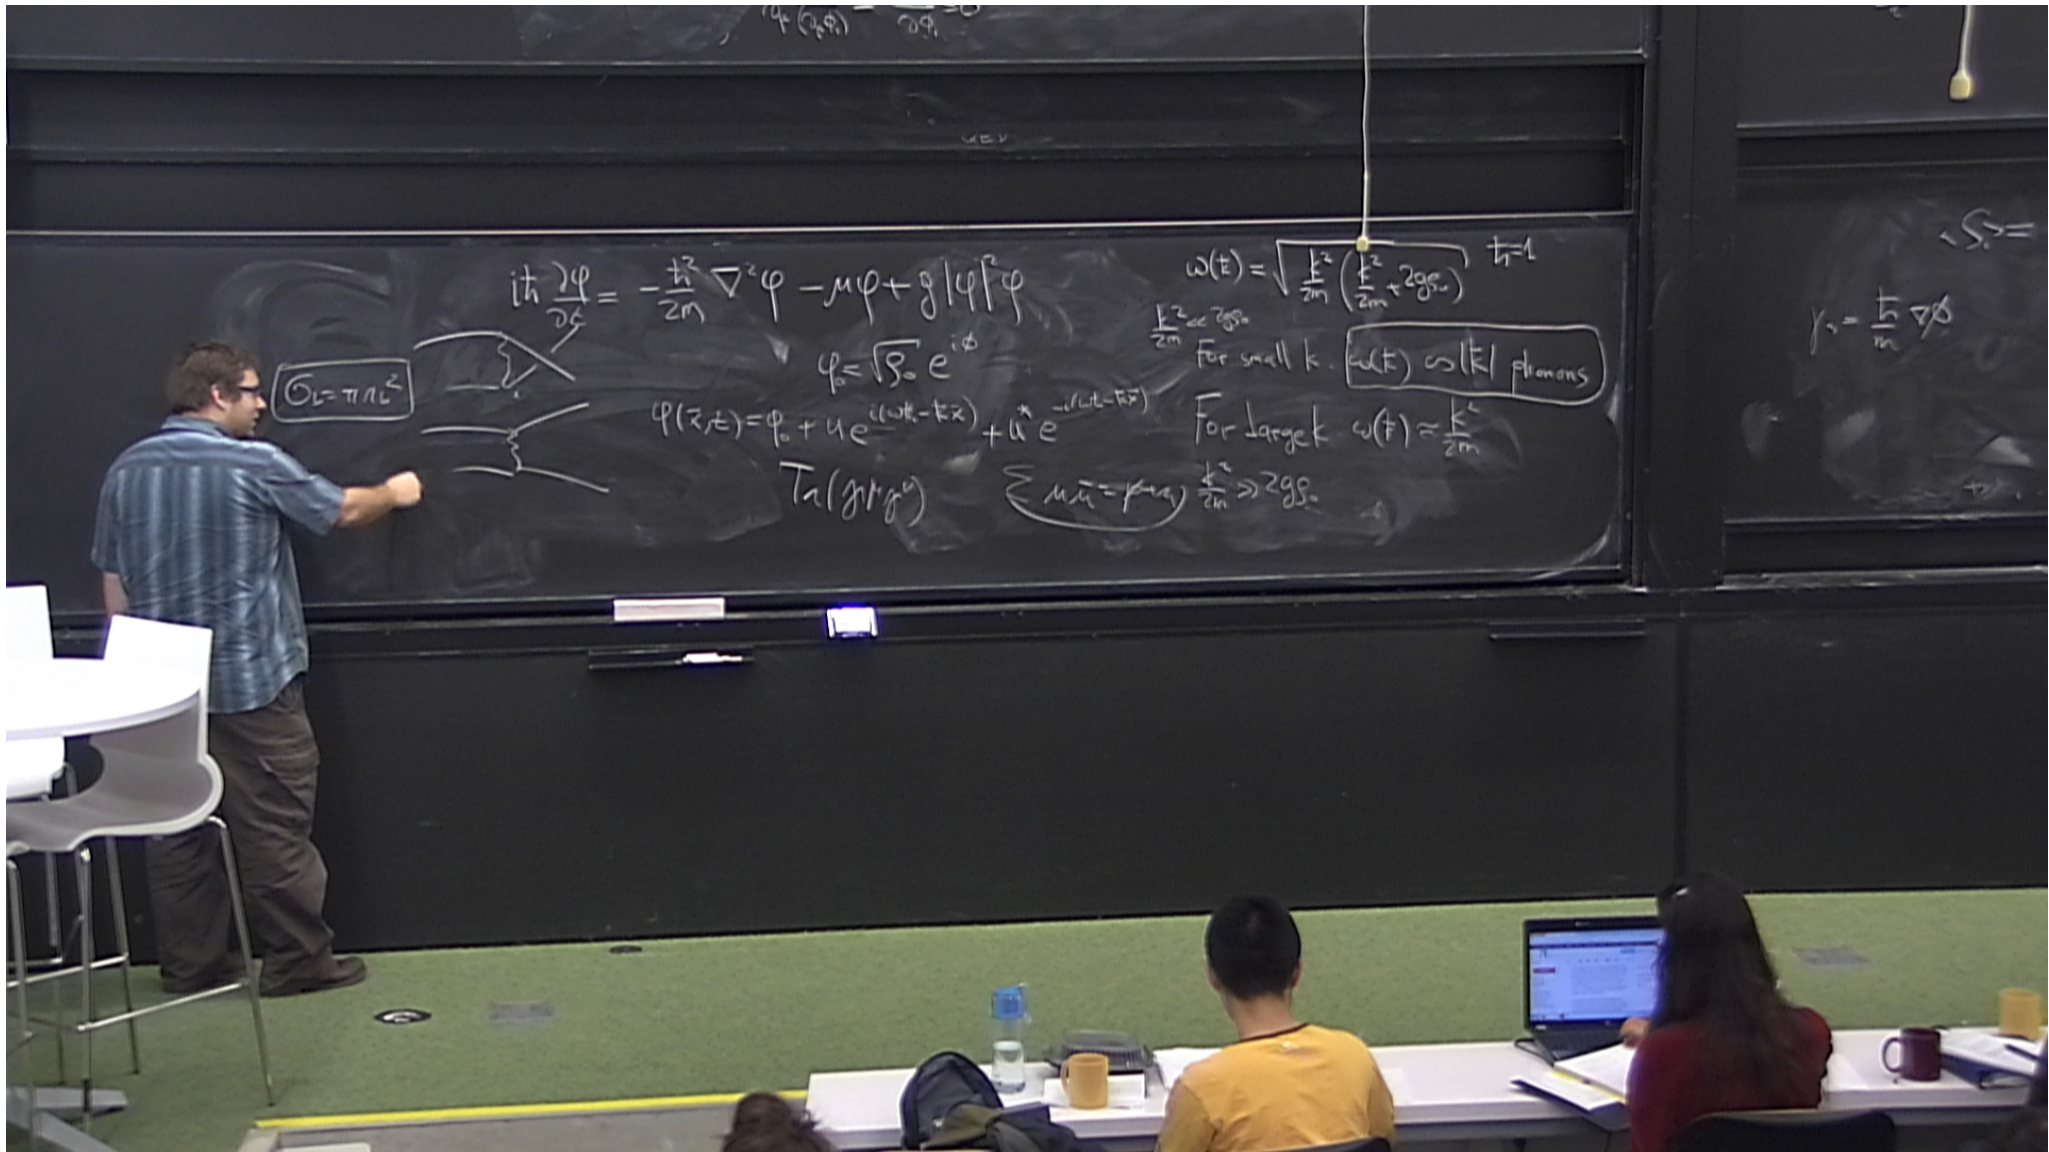 iħ ∂φ/∂t = -ħ²/2m ∇²φ - μφ + g|φ|²φ
σ_b = π r_b²
φ₀ = √ρ₀ e^{iφ}
φ(x⃗,t) = φ₀ + u e^{i(ωt - k⃗x⃗)} + u* e^{-i(ωt - k⃗x⃗)}
Tr(γ^μ γ^ν)
ω(k⃗) = √(k²/2m (k²/2m + 2gρ₀)) ħ=1
k²/2m << 2gρ₀
For small k. ω(k⃗) ∝ |k⃗| phonons
For large k ω(k⃗) ≈ k²/2m
k²/2m >> 2gρ₀
= ħ/m ∇φ